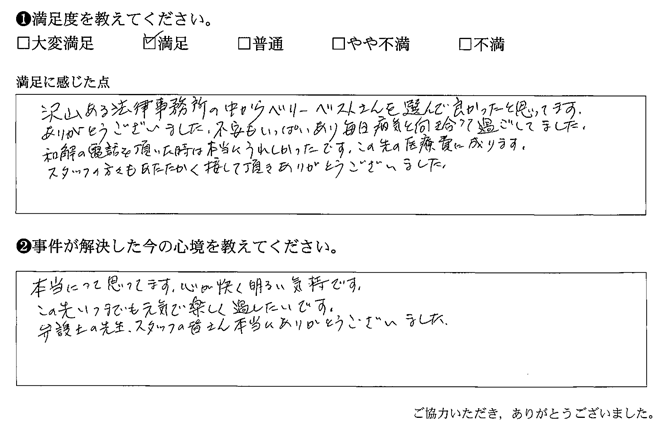 ❶満足度を教えてください。
□大変満足 ☑満足 □普通 □やや不満 □不満
満足に感じた点
沢山ある法律事務所の中からベリーベストさんを選んで良かったと思ってます。
ありがとうございました。不安もいっぱいあり毎日病気と向き合って過ごしてました。
和解の電話を頂いた時は本当にうれしかったです。この先の医療費に成ります。
スタッフの方々もあたたかく接して頂きありがとうございました。
❷事件が解決した今の心境を教えてください。
本当に 思ってます。心が快く明るい気持です。
この先いつまでも元気で楽しく過したいです。
弁護士の先生、スタッフの皆さん本当にありがとうございました。
ご協力いただき，ありがとうございました。